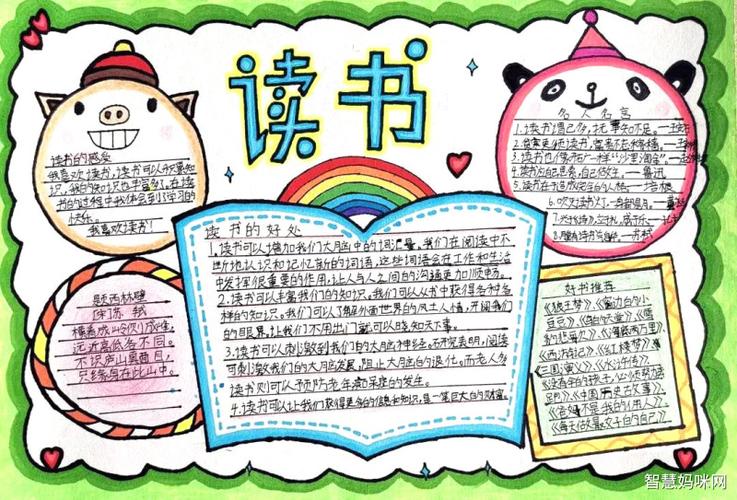 读书
读书的感受
我喜欢读书,读书可以增长知
识,我的知识也丰富多了,在读
书的过程中我体会到了学习的
快乐。
我喜欢读书!
名人名言
1.读书谓已多,抚事知不足。
4.读书如
鲁迅
培根
题西林壁
[宋]苏轼
横看成岭侧成峰,
远近高低各不同。
不识庐山真面目,
只缘身在此山中。
读书的好处
1.读书可以增加我们大脑中的词汇量。我们在阅读中不
断地认识和记忆新的词语,这些词语会在工作和生活
中发挥很重要的作用,让人与人之间的沟通更加顺畅。
2.读书可以丰富我们的知识。我们可以从书中获得各种各
样的知识。我们可以了解外面世界的风土人情,开阔我们
的眼界,让我们不用出门就可以晓知天下事。
3.读书可以刺激到我们的大脑神经。研究表明,阅读
可刺激我们的大脑发展,阻止大脑的退化。而老人多
读书则可以预防老年痴呆症的发生。
4.读书可以让我们获得更多的信息和知识,是一笔巨大的财富。
好书推荐
《狼王梦》、《窗边的小
豆豆》、
《海底两万里》、
《西游记》、《红楼梦》、
《三国演义》、《水浒传》
《没有伞的孩子,必须努力奔
跑》、《中国历史故事》、
《爸妈不是我的佣人》、
《每天做最好的自己》
智慧妈咪网